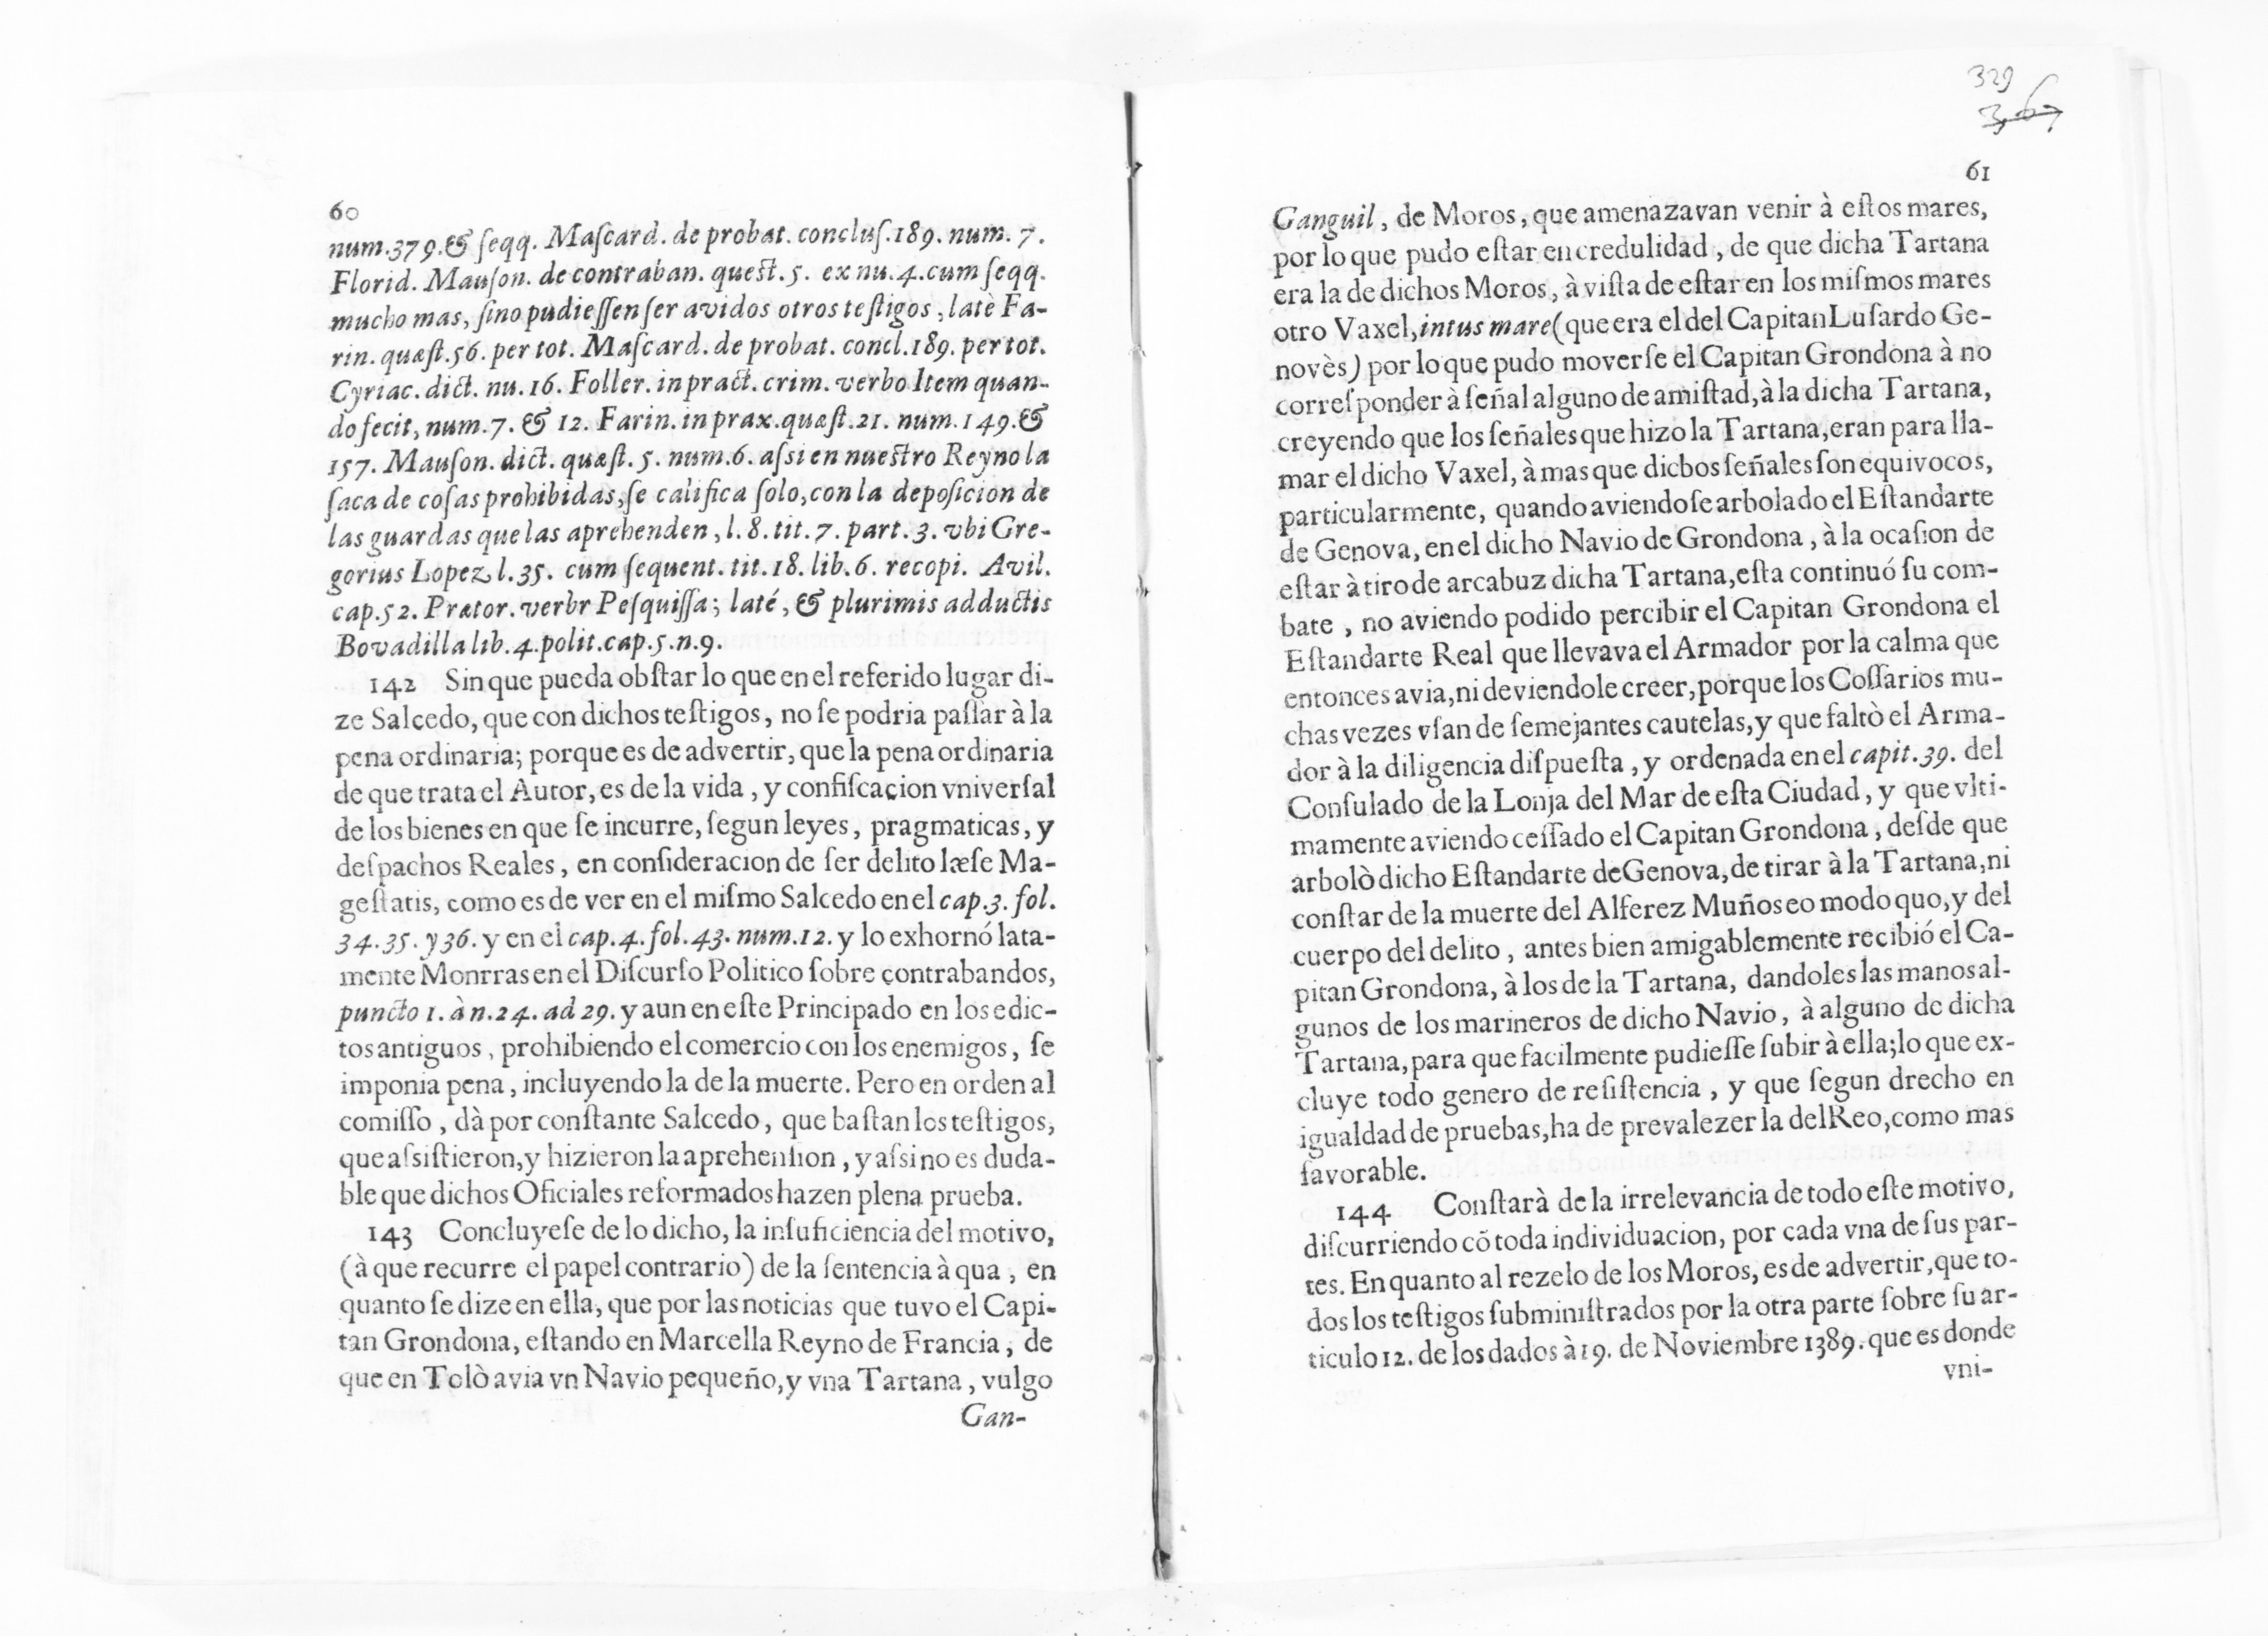 60
num.379.& ſeqq. Maſcard. de probat. concluſ.189. num. 7.
Florid. Mauſon. de contraban. quest. 5. ex nu. 4. cum ſeqq.
mucho mas, ſino pudieſſen ſer avidos otros teſtigos, latè Fa-
rin. quæſt.56. per tot. Maſcard. de probat. concl.189. per tot.
Cyriac. dict. nu. 16. Foller. in pract. crim. verbo Item quan-
do fecit, num.7. & 12. Farin. in prax. quæſt.21. num.149.&
157. Mauſon. dict. quæſt. 5. num.6. aſsi en nuestro Reyno la
ſaca de coſas prohibidas, ſe califica ſolo, con la depoſicion de
las guardas que las aprehenden, l. 8. tit. 7. part. 3. vbi Gre-
gorius Lopez l. 35. cum ſequent. tit. 18. lib. 6. recopi. Avil.
cap.52. Prætor. verbr Peſquiſſa; laté, & plurimis adductis
Bovadilla lib. 4. polit. cap. 5. n. 9.
142 Sin que pueda obſtar lo que en el referido lugar di-
ze Salcedo, que con dichos teſtigos, no ſe podria paſſar à la
pena ordinaria; porque es de advertir, que la pena ordinaria
de que trata el Autor, es de la vida, y confiſcacion vniverſal
de los bienes en que ſe incurre, ſegun leyes, pragmaticas, y
deſpachos Reales, en conſideracion de ſer delito læſe Ma-
geſtatis, como es de ver en el miſmo Salcedo en el cap.3. fol.
34. 35. y 36. y en el cap. 4. fol. 43. num. 12. y lo exhornó lata-
mente Monrras en el Diſcurſo Politico ſobre contrabandos,
puncto 1. à n. 24. ad 29. y aun en eſte Principado en los edic-
tos antiguos, prohibiendo el comercio con los enemigos, ſe
imponia pena, incluyendo la de la muerte. Pero en orden al
comiſſo, dà por conſtante Salcedo, que baſtan los teſtigos,
que aſsiſtieron, y hizieron la aprehenſion, y aſsi no es duda-
ble que dichos Oficiales reformados hazen plena prueba.
143 Concluyeſe de lo dicho, la inſuficiencia del motivo,
(à que recurre el papel contrario) de la ſentencia à qua, en
quanto ſe dize en ella, que por las noticias que tuvo el Capi-
tan Grondona, eſtando en Marcella Reyno de Francia, de
que en Tolò avia vn Navio pequeño, y vna Tartana, vulgo
Gan-
329
367
61
Ganguil, de Moros, que amenazavan venir à eſtos mares,
por lo que pudo eſtar en credulidad, de que dicha Tartana
era la de dichos Moros, à viſta de eſtar en los miſmos mares
otro Vaxel, intus mare (que era el del Capitan Luſardo Ge-
novès) por lo que pudo moverſe el Capitan Grondona à no
correſponder à ſeñal alguno de amiſtad, à la dicha Tartana,
creyendo que los ſeñales que hizo la Tartana, eran para lla-
mar el dicho Vaxel, à mas que dicbos ſeñales ſon equivocos,
particularmente, quando aviendoſe arbolado el Eſtandarte
de Genova, en el dicho Navio de Grondona, à la ocaſion de
eſtar à tiro de arcabuz dicha Tartana, eſta continuó ſu com-
bate, no aviendo podido percibir el Capitan Grondona el
Eſtandarte Real que llevava el Armador por la calma que
entonces avia, ni deviendole creer, porque los Coſſarios mu-
chas vezes vſan de ſemejantes cautelas, y que faltò el Arma-
dor à la diligencia diſpueſta, y ordenada en el capit. 39. del
Conſulado de la Lonja del Mar de eſta Ciudad, y que vlti-
mamente aviendo ceſſado el Capitan Grondona, deſde que
arbolò dicho Eſtandarte de Genova, de tirar à la Tartana, ni
conſtar de la muerte del Alferez Muños eo modo quo, y del
cuerpo del delito, antes bien amigablemente recibió el Ca-
pitan Grondona, à los de la Tartana, dandoles las manos al-
gunos de los marineros de dicho Navio, à alguno de dicha
Tartana, para que facilmente pudieſſe ſubir à ella; lo que ex-
cluye todo genero de reſiſtencia, y que ſegun drecho en
igualdad de pruebas, ha de prevalezer la del Reo, como mas
favorable.
144 Conſtarà de la irrelevancia de todo eſte motivo,
diſcurriendo cõ toda individuacion, por cada vna de ſus par-
tes. En quanto al rezelo de los Moros, es de advertir, que to-
dos los teſtigos ſubminiſtrados por la otra parte ſobre ſu ar-
ticulo 12. de los dados à 19. de Noviembre 1389. que es donde
vni-